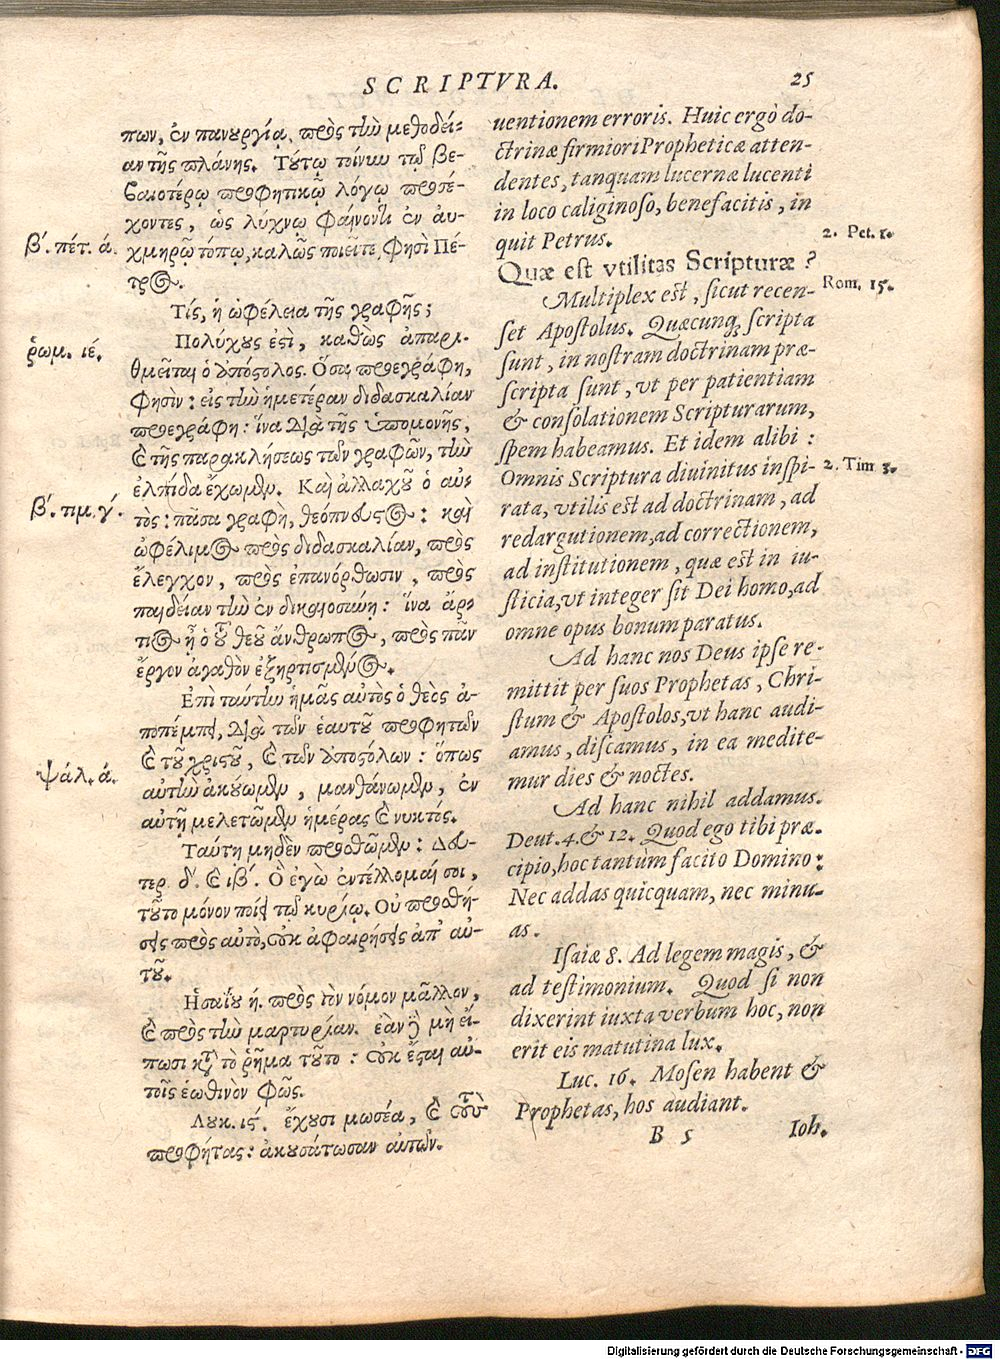 SCRIPTVRA.
25
πων, ἐν πανουργίᾳ, πρὸς τὴν μεθοδεί-
αν τῆς πλάνης. Τούτῳ τοίνυν τῷ βε-
βαιοτέρῳ προφητικῷ λόγῳ προσέ-
χοντες, ὡς λύχνῳ φαίνοντι ἐν αὐ-
χμηρῷ τόπῳ, καλῶς ποιεῖτε, φησὶ Πέ-
τρος.
β΄. πέτ. ά.
Τίς, ἡ ὠφέλεια τῆς γραφῆς;
Πολύχους ἐστὶ, καθὼς ἀπαρι-
θμεῖται ὁ ἀπόστολος. Ὅσα προεγράφη,
φησὶν: εἰς τὴν ἡμετέραν διδασκαλίαν
προεγράφη: ἵνα διὰ τῆς ὑπομονῆς,
καὶ τῆς παρακλήσεως τῶν γραφῶν, τὴν
ἐλπίδα ἔχωμεν. Καὶ ἀλλαχοῦ ὁ αὐ-
τὸς: πᾶσα γραφὴ, θεόπνευστος: καὶ
ὠφέλιμος πρὸς διδασκαλίαν, πρὸς
ἔλεγχον, πρὸς ἐπανόρθωσιν, πρὸς
παιδείαν τὴν ἐν δικαιοσύνῃ: ἵνα ἄρ-
τιος ᾖ ὁ τοῦ θεοῦ ἄνθρωπος, πρὸς πᾶν
ἔργον ἀγαθὸν ἐξηρτισμένος.
ῥωμ. ιέ.
β΄. τιμ. γ΄.
Ἐπὶ ταύτην ἡμᾶς αὐτὸς ὁ θεὸς ἀ-
ποπέμπει, διὰ τῶν ἑαυτοῦ προφητῶν
καὶ τοῦ χριστοῦ, καὶ τῶν ἀποστόλων: ὅπως
αὐτὴν ἀκούωμεν, μανθάνωμεν, ἐν
αὐτῇ μελετῶμεν ἡμέρας καὶ νυκτός.
ψάλ. ά.
Ταύτῃ μηδὲν προσθῶμεν: Δευ-
τερ. δ΄. καὶ ιβ΄. Ὃ ἐγὼ ἐντέλλομαί σοι,
τοῦτο μόνον ποίει τῷ κυρίῳ. Οὐ προσθή-
σεις πρὸς αὐτὸ, οὐκ ἀφαιρήσεις ἀπ' αὐ-
τοῦ.
Ἡσαΐου ή. πρὸς τὸν νόμον μᾶλλον,
καὶ πρὸς τὴν μαρτυρίαν. ἐὰν δὲ μὴ εἴ-
πωσι κατὰ τὸ ῥῆμα τοῦτο: οὐκ ἔσται αὐ-
τοῖς ἑωθινὸν φῶς.
Λουκ. ις΄. ἔχουσι μωσέα, καὶ τοὺς
προφήτας: ἀκουσάτωσαν αὐτῶν.
uentionem erroris. Huic ergò do-
ctrinæ firmiori Propheticæ atten-
dentes, tanquam lucernæ lucenti
in loco caliginoso, benefacitis, in
quit Petrus.
2. Pet. 1.
Quæ est vtilitas Scripturæ?
Multiplex est, sicut recen-
set Apostolus. Quæcunq; scripta
sunt, in nostram doctrinam præ-
scripta sunt, vt per patientiam
& consolationem Scripturarum,
spem habeamus. Et idem alibi:
Omnis Scriptura diuinitus inspi-
rata, vtilis est ad doctrinam, ad
redargutionem, ad correctionem,
ad institutionem, quæ est in iu-
sticia, vt integer sit Dei homo, ad
omne opus bonum paratus.
Rom. 15.
2. Tim 3.
Ad hanc nos Deus ipse re-
mittit per suos Prophetas, Chri-
stum & Apostolos, vt hanc audi-
amus, discamus, in ea medite-
mur dies & noctes.
Ad hanc nihil addamus.
Deut. 4. & 12. Quod ego tibi præ-
cipio, hoc tantùm facito Domino:
Nec addas quicquam, nec minu-
as.
Isaiæ 8. Ad legem magis, &
ad testimonium. Quod si non
dixerint iuxta verbum hoc, non
erit eis matutina lux.
Luc. 16. Mosen habent &
Prophetas, hos audiant.
B 5
Ioh.
Digitalisierung gefördert durch die Deutsche Forschungsgemeinschaft - DFG